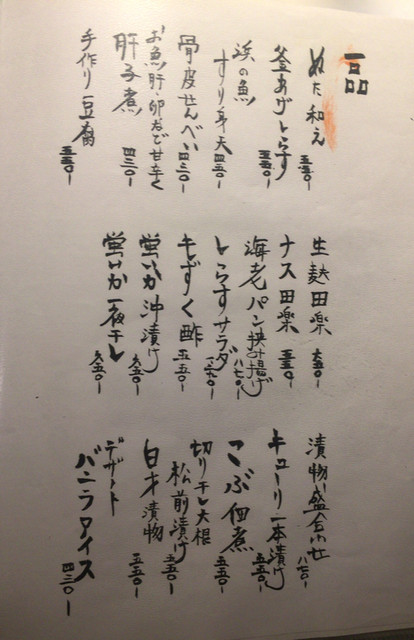 一品
ぬた和え 五五〇-
釜あげしらす 五五〇-
浜の魚
すり身天 四五〇-
骨皮せんべい 四三〇-
お魚肝・卵など甘辛く
肝子煮 四三〇-
手作り豆腐 五五〇-
生麩田楽 六五〇-
ナス田楽 五五〇-
海老パン挟み揚げ 八七〇-
しらすサラダ
もずく酢 五五〇-
蛍いか沖漬け 六五〇-
蛍いか一夜干し 六五〇-
漬物盛合わせ 八七〇-
キューリ一本漬け 五五〇-
こぶ佃煮 五五〇-
切り干し大根
松前漬け 五五〇-
白才漬物 五五〇-
デザート
バニラアイス 四三〇-